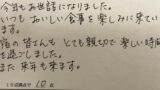 今当もお世話になりました。
いつも おいしい食事を楽しみに来て
います。
宿の皆さんも とても親切で 楽しい時間
を過ごしました。
また 来年も来ます。
10